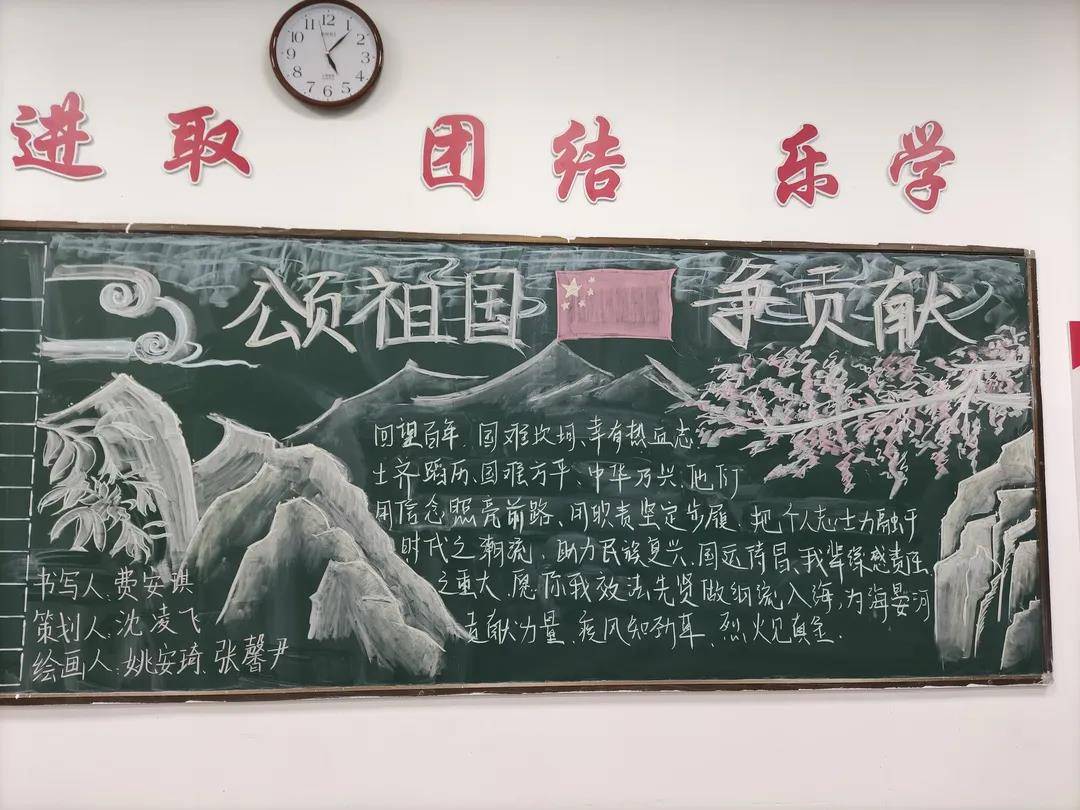 12
1
2
3
4
5
6
7
8
9
10
11
进取 团结 乐学
颂祖国 争贡献
回望百年,国难坎坷、幸有热血志
士齐蹈厉,国难方平、中华乃兴,他们
用信念照亮前路、用职责坚定步履,把个人志士力融于
时代之潮流,助力民族复兴,国运倚昌,我辈深感责任
之重大,愿你我效法先贤做细流入海,为海晏河
贡献力量,疾风知劲草,烈火见真金.
书写人:费安琪
策划人:沈凌飞
绘画人:姚安琦、张馨尹